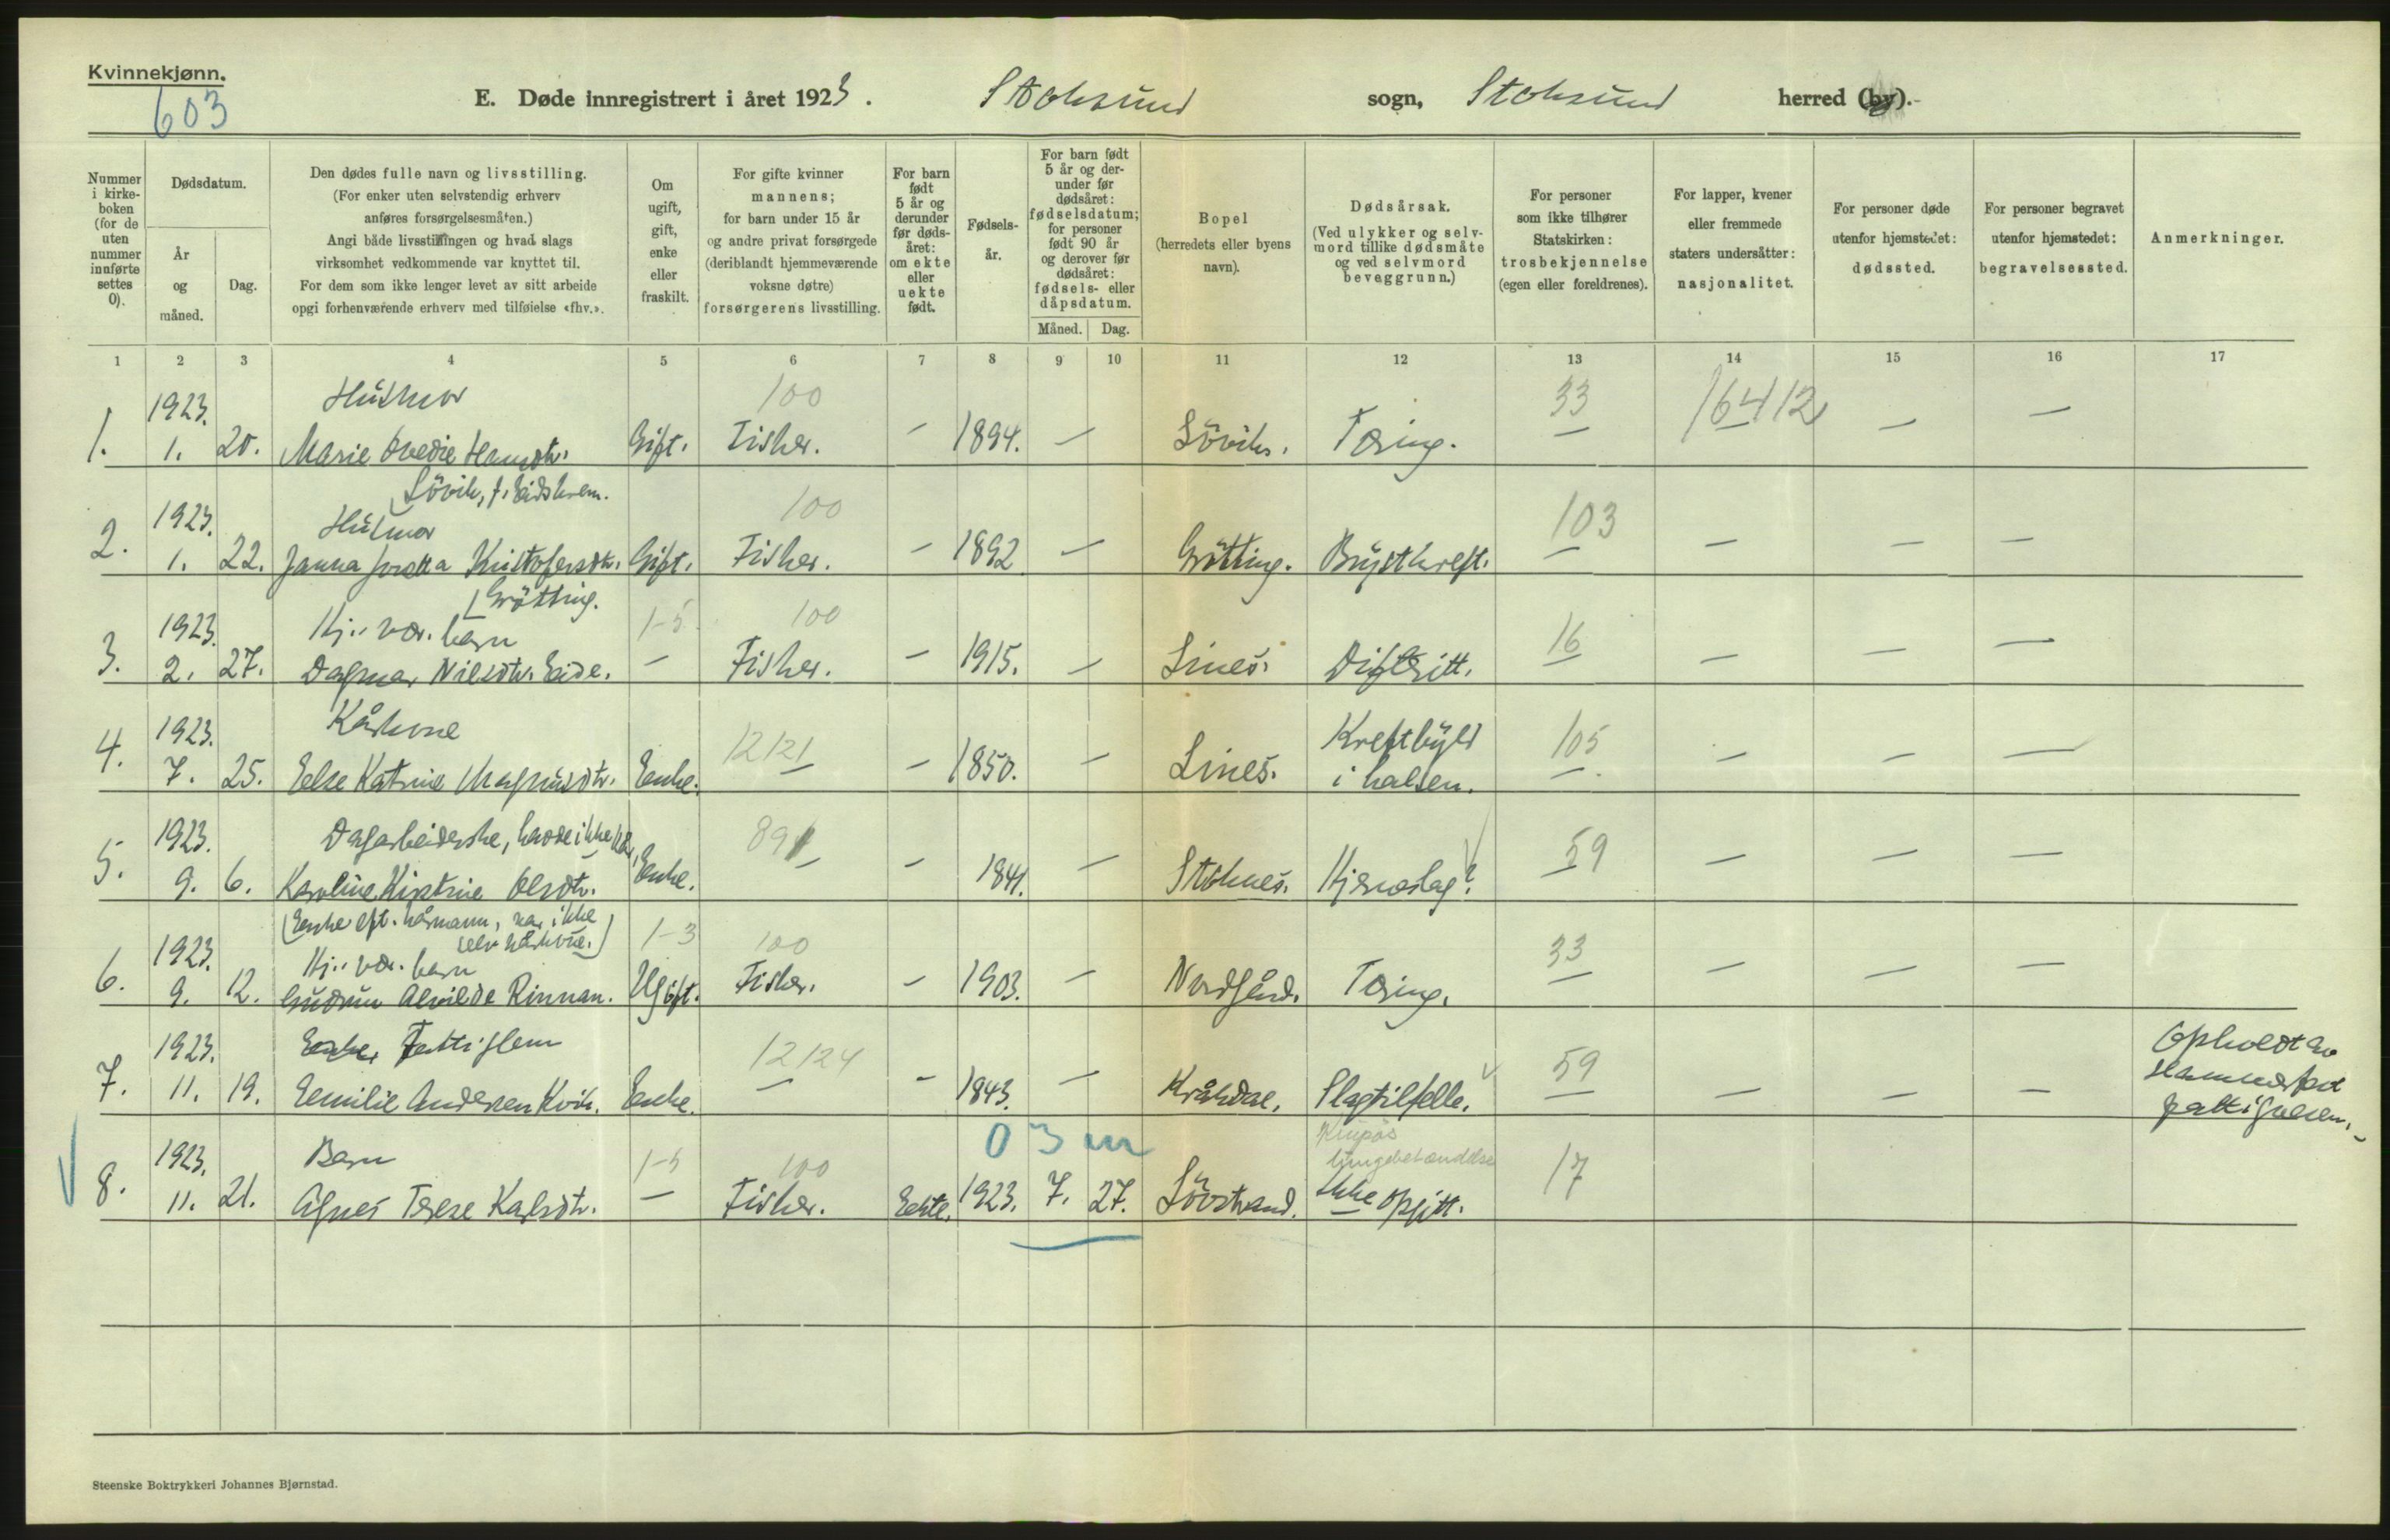 Kvinnekjønn.
603
E. Døde innregistrert i året 1923. Stoksund sogn, Stoksund herred (by).
Nummer i kirke-boken (for de uten nummer innførte settes 0).
Dødsdatum.
År og måned.
Dag.
Den dødes fulle navn og livsstilling.
(For enker uten selvstendig erhverv anføres forsørgelsesmåten.)
Angi både livsstillingen og hvad slags virksomhet vedkommende var knyttet til.
For dem som ikke lenger levet av sitt arbeide opgi forhenværende erhverv med tilføielse «fhv.».
Om ugift, gift, enke eller fraskilt.
For gifte kvinner mannens; for barn under 15 år og andre privat forsørgede (deriblandt hjemmeværende voksne døtre) forsørgerens livsstilling.
For barn født 5 år og derunder før døds-året: om ekte eller uekte født.
Fødsels-år.
For barn født 5 år og der-under før dødsåret: fødselsdatum; for personer født 90 år og derover før dødsåret: fødsels- eller dåpsdatum.
Måned.
Dag.
Bopel (herredets eller byens navn).
Dødsårsak. (Ved ulykker og selv-mord tillike dødsmåte og ved selvmord beveggrunn.)
For personer som ikke tilhører Statskirken: trosbekjennelse (egen eller foreldrenes).
For lapper, kvener eller fremmede staters undersåtter: nasjonalitet.
For personer døde utenfor hjemstedet: dødssted.
For personer begravet utenfor hjemstedet: begravelsessted.
Anmerkninger.
1 2 3 4 5 6 7 8 9 10 11 12 13 14 15 16 17
1923. Husmor 100 33 16412
1. 1. 20. Marie Ovedie Hansdtr. Gift. Fisker. — 1894. — Lövik. Tæring. — — —
Lövik, f. Eidshrem.
1923. Husmor 100 103
2. 1. 22. Janna Kristofersdtr. Gift. Fisker. — 1892 — Grötting. Brystkreft. — — — —
Grötting.
1923. Hj.. vær. barn 1-5 100 16
3. 2. 27. Dagmar Nilsdtr. Eide. — Fisker. — 1915. — Lines. Difteritt. — — —
1923. Kårkone 12121 Kreftbyld 105
4. 7. 25. Else Katrine Magnusdtr. Enke. — 1850. — Lines. i halsen. — — — —
1923. Dagarbeiderske, havde ikke kår, 891 59
5. 9. 6. Karoline Kirstine Olsdtr. Enke. — — 1841. — Stoknes. Hjerneslag? — — — —
(Enke eft. kårmann, var ikke
selv kårkone.)
1923. Hj.. vær. barn 1-3 100 33
6. 9. 12. Gudrun Alvilde Rinnan. Ugift. Fisker. — 1903. — Nordgård. Tæring. — — — —
1923. Enke, Fattiglem 12124 59 Opholdt av
7. 11. 19. Emilie Andersen Kvik. Enke. — — 1843. — Kråkdal. Slagtilfelle. — — — — Hammerfest
fattigvesen.
0 3 m
Krupøs
lungebetændelse
1923. Barn 1-5 100 17
8. 11. 21. Agnes Terese Karlsdtr. — Fisker. Ekte. 1923. 7. 27. Lövstrand. Ikke opgitt.
Steenske Boktrykkeri Johannes Bjørnstad.